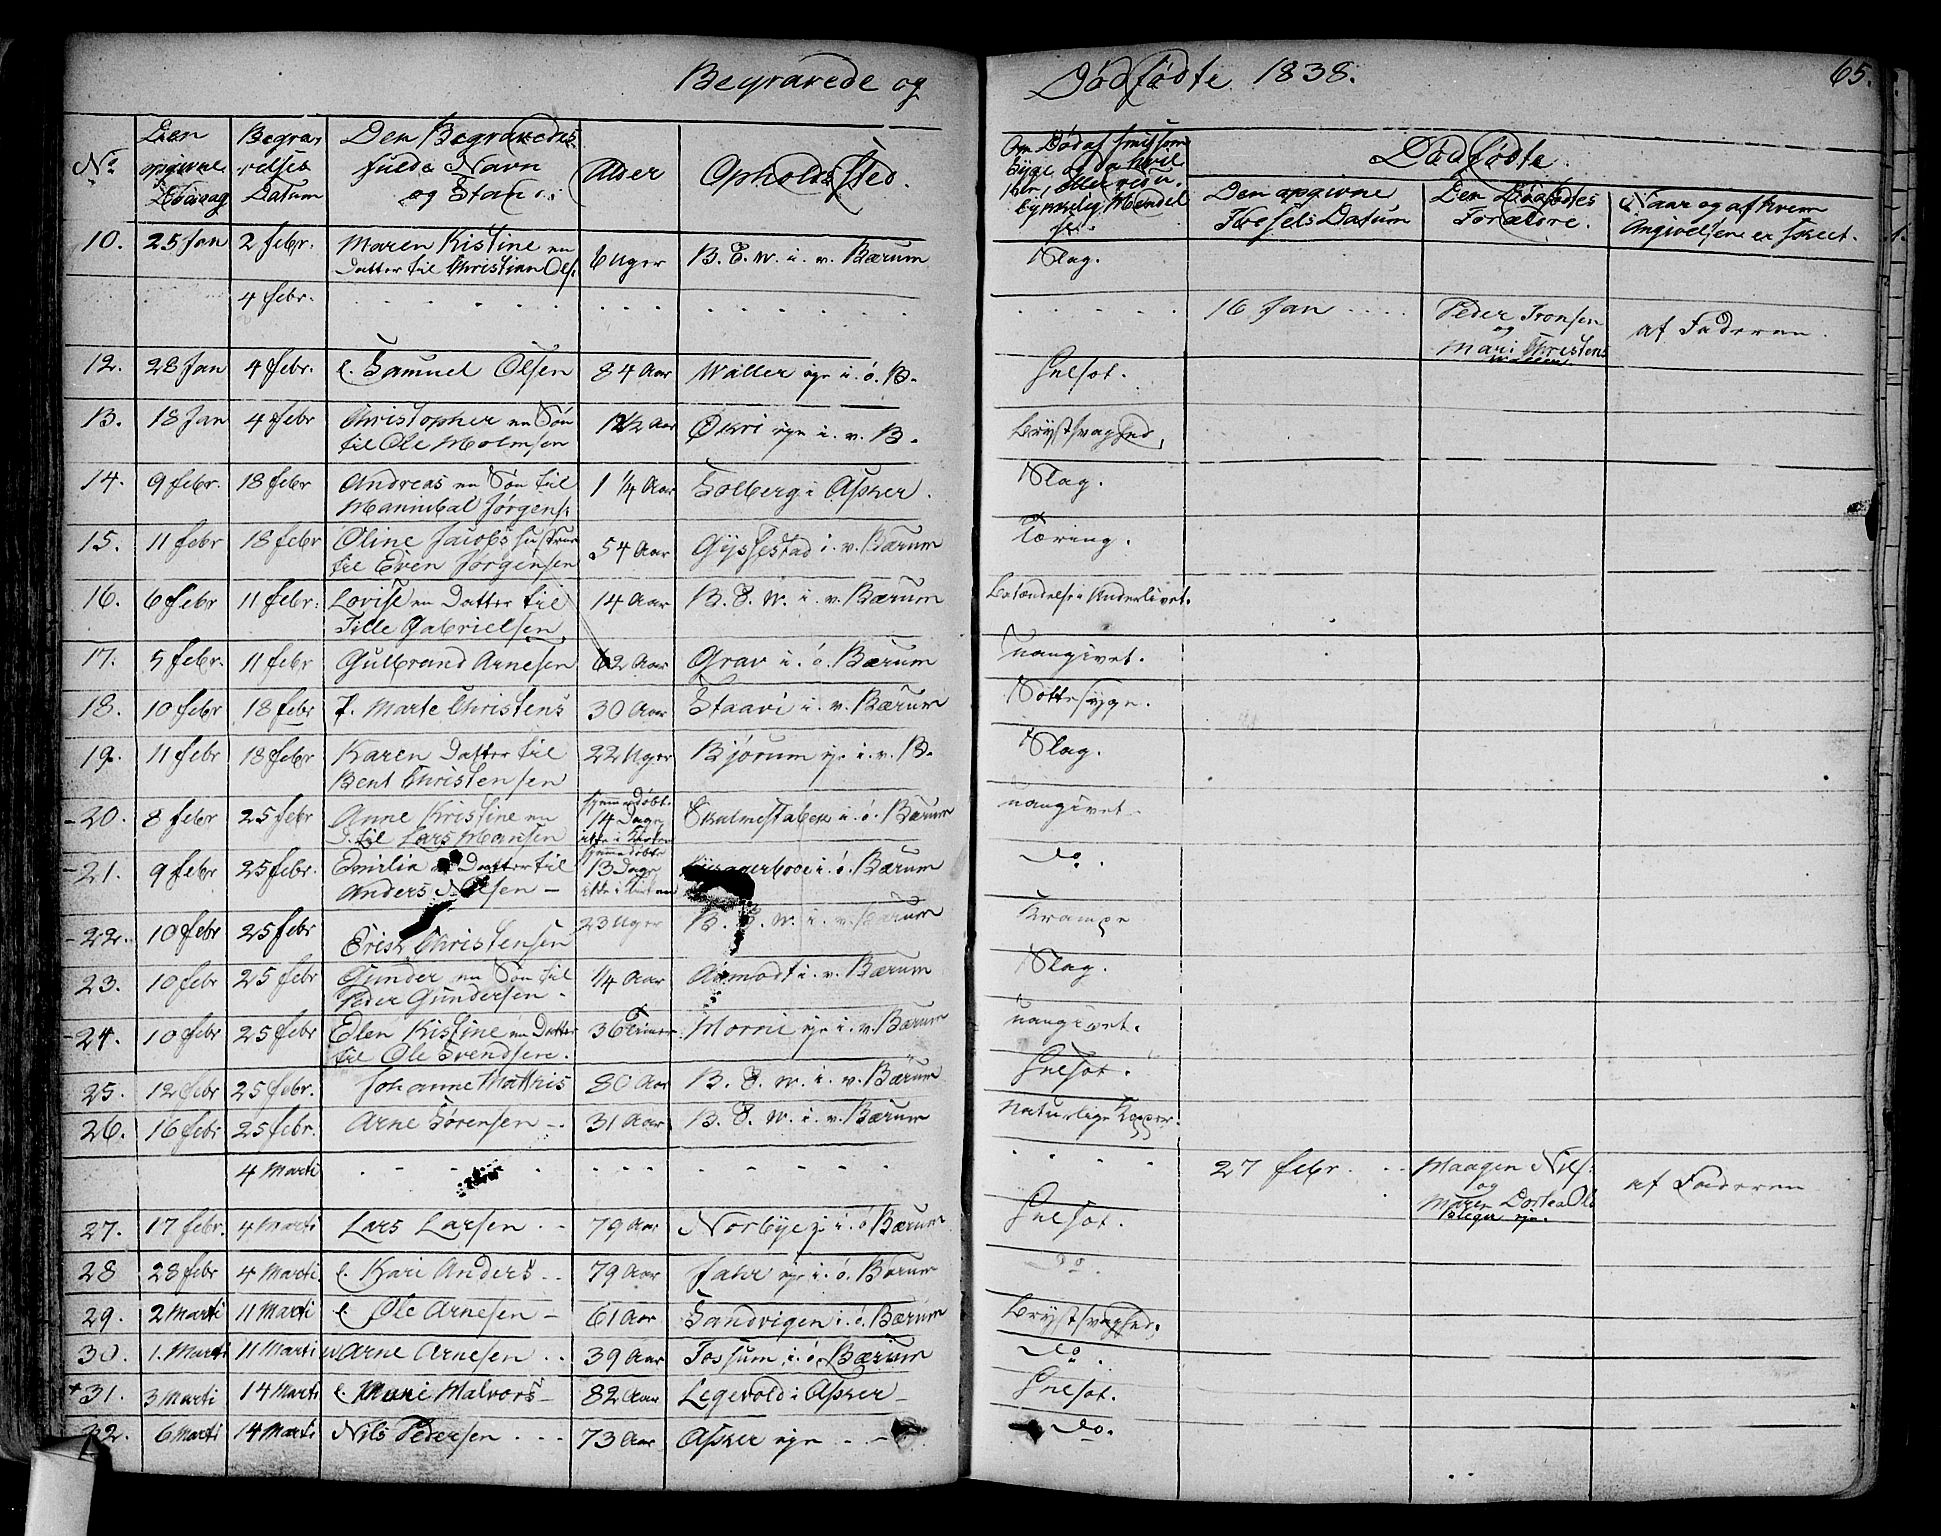 Begravede og Dødfødte 1838. 65.
No Den opgivne Dødsdag Begravelses Datum Den Begravedes fulde Navn og Stand. Alder Opholds Sted.
Dødfødte.
Den opgivne Fødsels Datum Den Dødfødtes Forældre. Naar og af hvem Angivelsen er skeet.
10. 25 Jan 2 febr. Maren Kistine en Datter til Christian Ols. 6 Uger B. E. W. i. v. Bærum Slag.
4 febr. 16 Jan Peder Tronsen og Mari Christens af Faderen.
12. 28 Jan 4 febr. e. Samuel Olsen 84 Aar Waller eje i. ø. B. Gulsot.
13. 18 Jan 4 febr Christopher en Søn til Ole Holmsen 1 1/2 Aar Økri eje i. v. B. Brystsvaghed,
14. 9 febr. 18 febr Andreas en Søn til Hannibal Jørgens. 1 1/4 Aar Solberg i Asker. Slag.
15. 11 febr 18 febr Oline Jacobs Hustrue til Even Jørgensen 54 Aar Gjssestad i. v. Bærum Tæring.
16. 6 febr 11 febr. Lovise en Datter til Tille Gabrielsen 14 Aar B. E. W. i. v. Bærum Betændelse i Underlivet.
17. 5 febr. 11 febr Gulbrand Arnesen 62 Aar Grav i. ø. Bærum uangivet.
18. 10 febr 18 febr f. Marte Christens 30 Aar Staavi i. v. Bærum Sottesyge.
19. 11 febr 18 febr Karen Datter til Bent Christensen 22 Uger Bjørum eje i. v. B. Slag.
20. 8 febr 25 febr Anne Kristine en D. til Lars Hansen hjemmedøbt 14 Dage, ikke i Kirken Skulmestabek i. ø. Bærum uangivet
21. 9 febr 25 febr. Emilia Datter til Anders Nilsen - hjemmedøbt 13 Dage ikke i Kirken i. ø. Bærum do.
22. 10 febr 25 febr Erich Christensen 23 Uger B. E. W. i. v. Bærum Krampe
23. 10 febr 25 febr Gunder en Søn til Peder Gundersen 1/4 Aar Aamodt i. v. Bærum Slag.
24. 10 febr 25 febr Elen Kistine en Datter til Ole Svendsen. 36 Timer Horni eje i. v. Bærum uangivet.
25. 12 febr 25 febr. Johanne Mathis 80 Aar B. E. W. i. v. Bærum Gulsot.
26. 16 febr 25 febr. Arne Sørensen 31 Aar B. E. W. i. v. Bærum Naturlige Kopper.
4 Marti 27 febr. Haagen Nils. og Maren Dortea Ols af Faderen
27. 17 febr. 4 Marti Lars Larsen 79 Aar Norbye i. ø Bærum Gulsot.
28 28 febr 4 Marti e. Kari Anders 79 Aar Jahr eje i. ø. Bærum do.
29. 2 Marti 11 Marti e. Ole Arnesen 61 Aar Sandvigen i. ø. Bærum Brystsvaghed.
30. 1. Marti 11 Marti Arne Arnesen 39 Aar Fossum i. ø. Bærum do.
+ 31. 3 Marti 14 Marti e. Mari Halvors 82 Aar Legevold i Asker Gulsot.
32. 6 Marti 14 Marti Nils Pedersen 73 Aar Asker eje do.